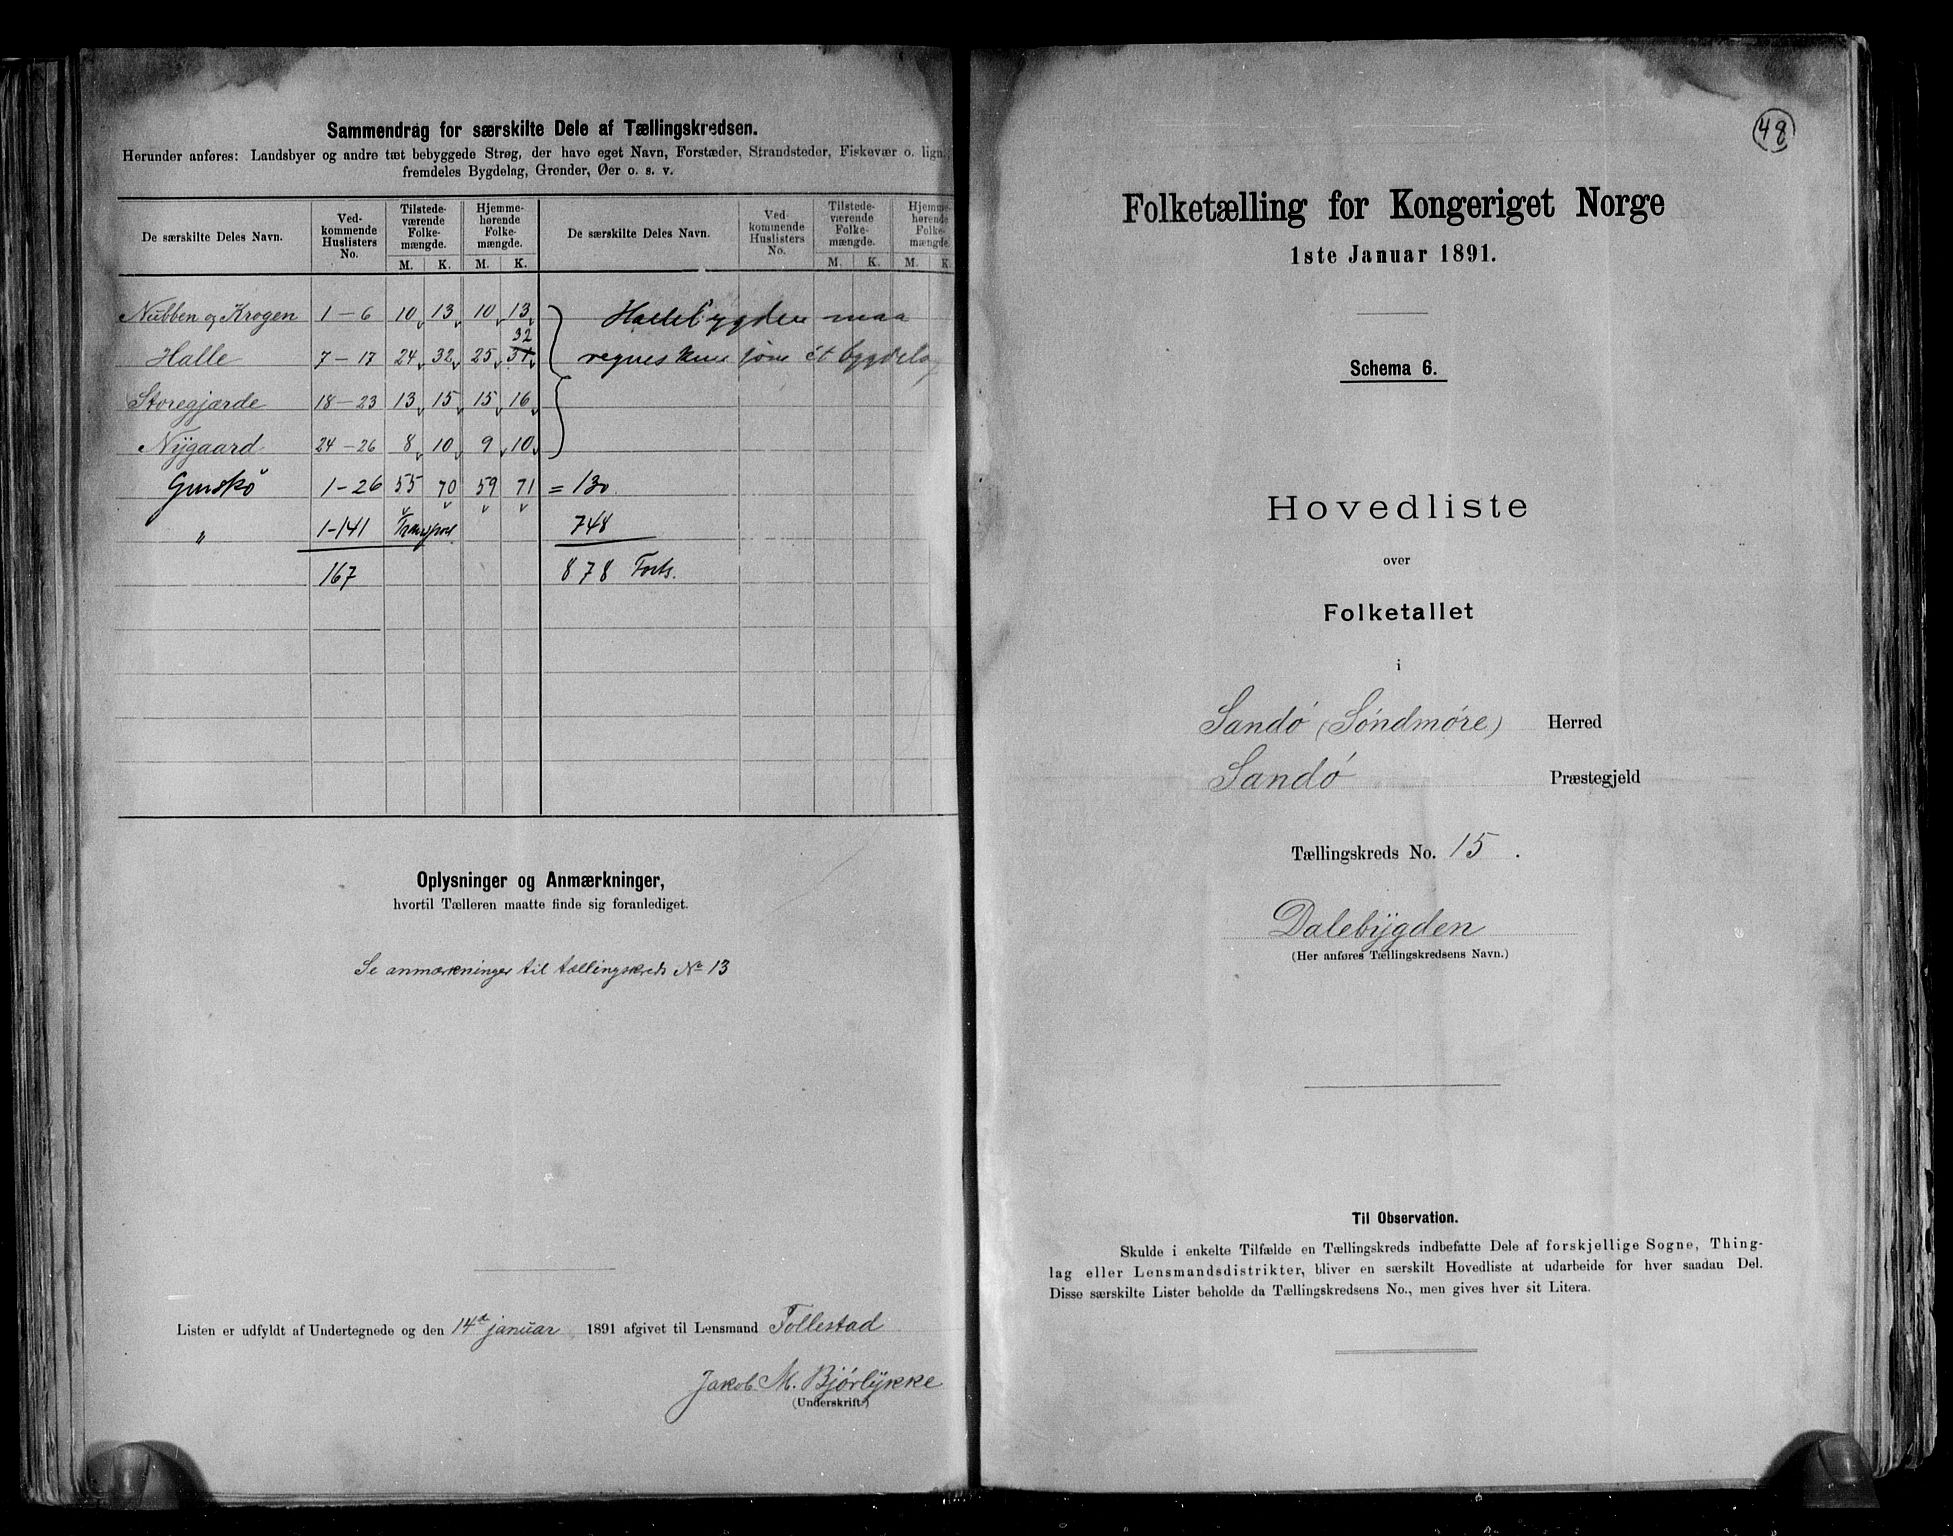 Sammendrag for særskilte Dele af Tællingskredsen.
Herunder anføres: Landsbyer og andre tæt bebyggede Strøg, der have eget Navn, Forstæder, Strandsteder, Fiskevær o. lign.,
fremdeles Bygdelag, Grender, Øer o. s. v.
De særskilte Deles Navn. Ved-kommende Huslisters No. Tilstede-værende Folke-mængde. Hjemme-hørende Folke-mængde. De særskilte Deles Navn. Ved-kommende Huslisters No. Tilstede-værende Folke-mængde. Hjemme-hørende Folke-mængde.
M. K. M. K. M. K. M. K.
Nubben og Krogen 1-6 10 13 10 13 Hallebygden maa
32
Halle 7-17 24 32 25 31 regnes som ét bygdelag
Storegjærde 18-23 13 15 15 16
Nygaard 24-26 8 10 9 10
Gurskö 1-26 55 70 59 71 = 130
" 1-141 Transport 748
167 878 Forts.
Oplysninger og Anmærkninger,
hvortil Tælleren maatte finde sig foranlediget.
Se anmærkninger til tællingskreds No 13
Listen er udfyldt af Undertegnede og den 14de januar 1891 afgivet til Lensmand Tollestad
Jakob M. Bjørlykke
(Underskrift.)
48
Folketælling for Kongeriget Norge
1ste Januar 1891.
Schema 6.
Hovedliste
over
Folketallet
i
Sandø (Søndmøre) Herred
Sandø Præstegjeld
Tællingskreds No. 15.
Dalebygden
(Her anføres Tællingskredsens Navn.)
Til Observation.
Skulde i enkelte Tilfælde en Tællingskreds indbefatte Dele af forskjellige Sogne, Thing-
lag eller Lensmandsdistrikter, bliver en særskilt Hovedliste at udarbeide for hver saadan Del.
Disse særskilte Lister beholde da Tællingskredsens No., men gives hver sit Litera.